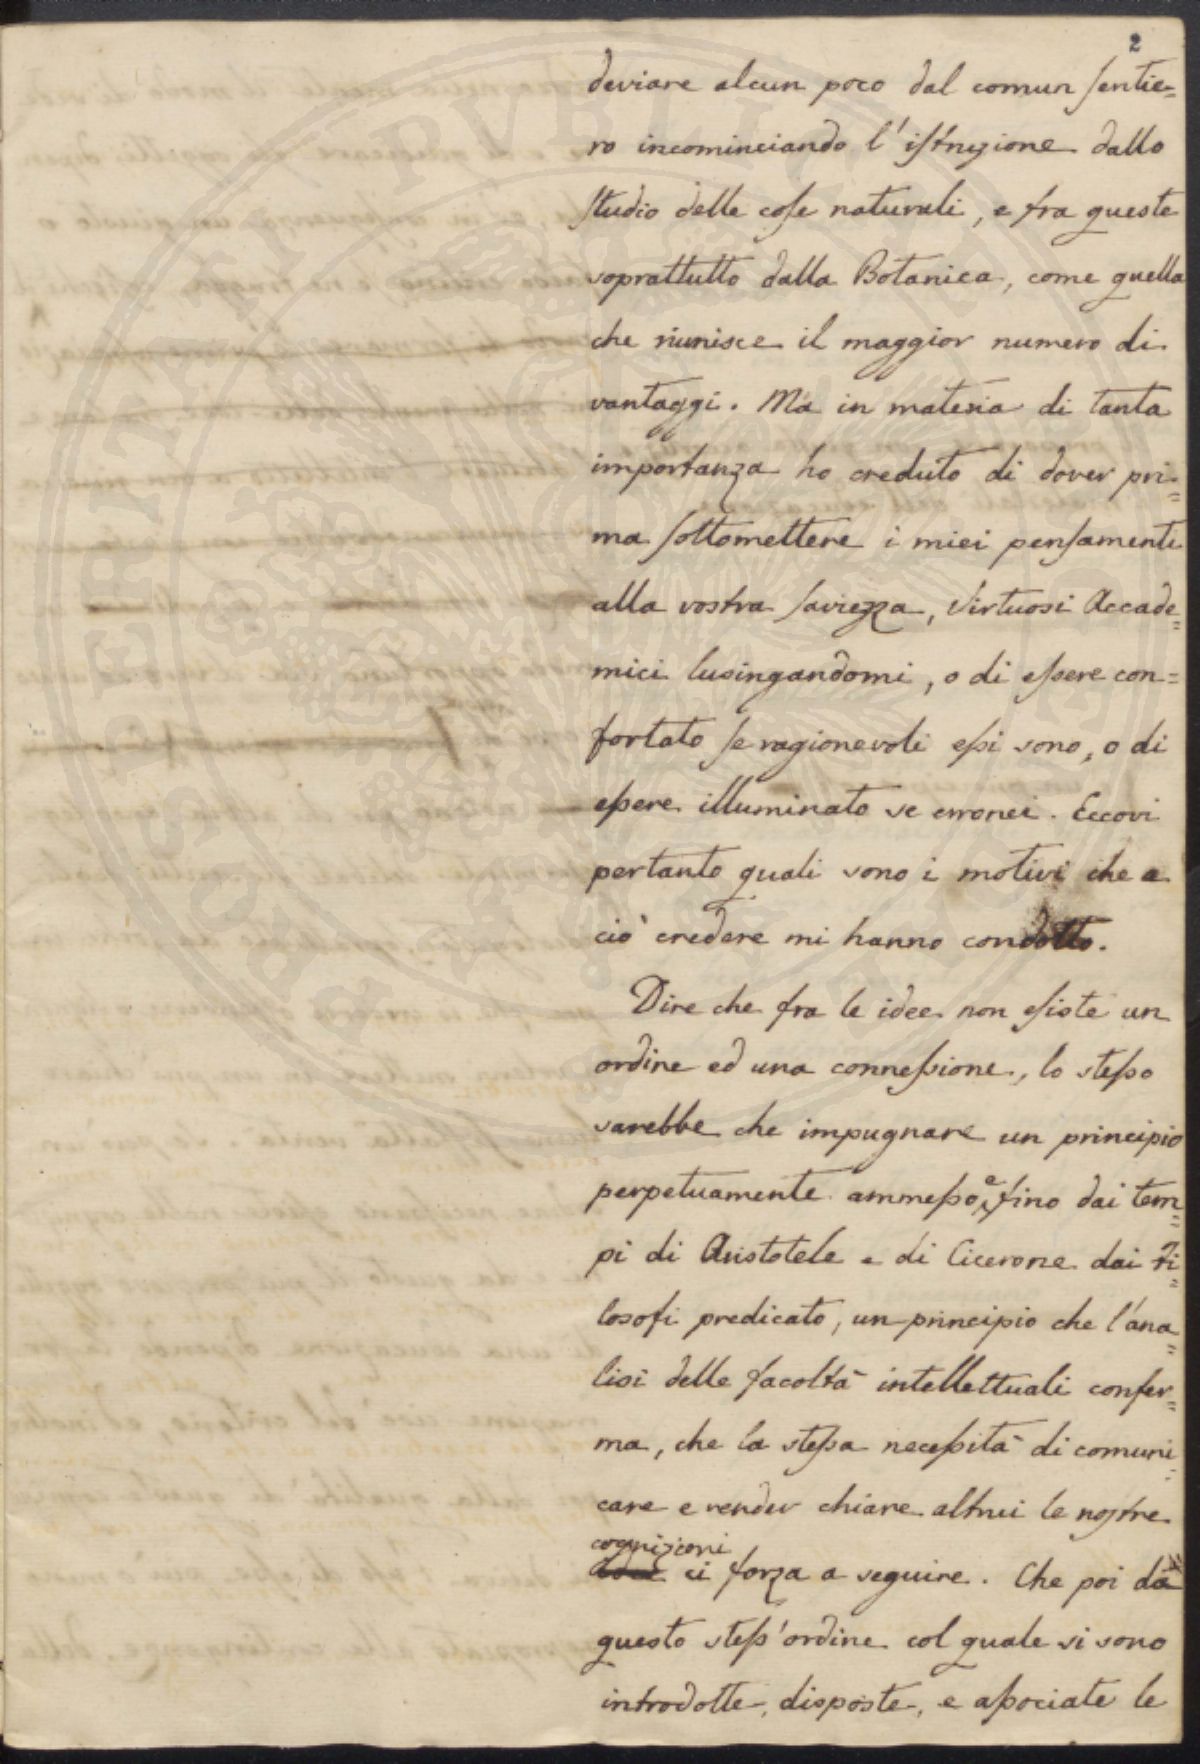 2
deviare alcun poco dal comun sentie=
ro incominciando l'istruzione dallo
studio delle cose naturali, e fra queste
soprattutto dalla Botanica, come quella
che riunisce il maggior numero di
vantaggi. Ma in materia di tanta
importanza ho creduto di dover pri=
ma sottomettere i miei pensamenti
alla vostra saviezza, Virtuosi Accade=
mici lusingandomi, o di essere con=
fortato se ragionevoli essi sono, o di
essere illuminato se erronei. Eccovi
pertanto quali sono i motivi che a
ciò credere mi hanno condotto.
Dire che fra le idee non esiste un
ordine ed una connessione, lo stesso
sarebbe che impugnare un principio
perpetuamente ammesso, e fino dai tem=
pi di Aristotele e di Cicerone dai Fi=
losofi predicato, un principio che l'ana=
lisi delle facoltà intellettuali confer=
ma, che la stessa necessità di comuni=
care e render chiare altrui le nostre
cognizioni
ci forza a seguire. Che poi da
questo stess'ordine col quale si sono
introdotte, disposte, e associate le